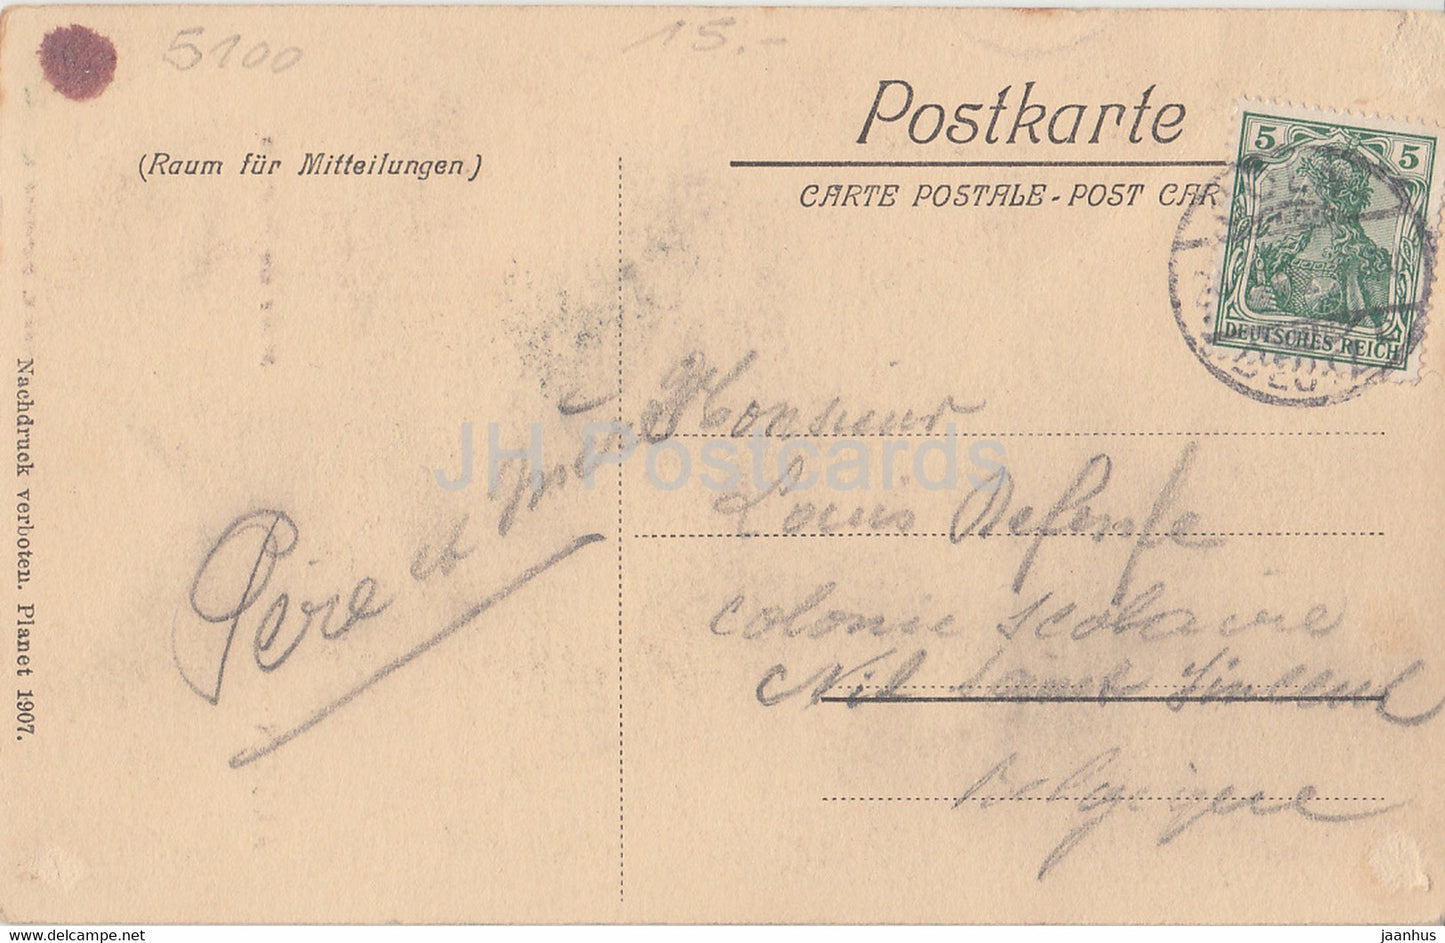 5100
15.-
Postkarte
(Raum für Mitteilungen.)
CARTE POSTALE - POST CAR
5 5
DEUTSCHES REICH
Monsieur
Louis
colonie scolaire
Belgique
Père et
Nachdruck verboten. Planet 1907.
JH Postcards
www.delcampe.net
jaanhus